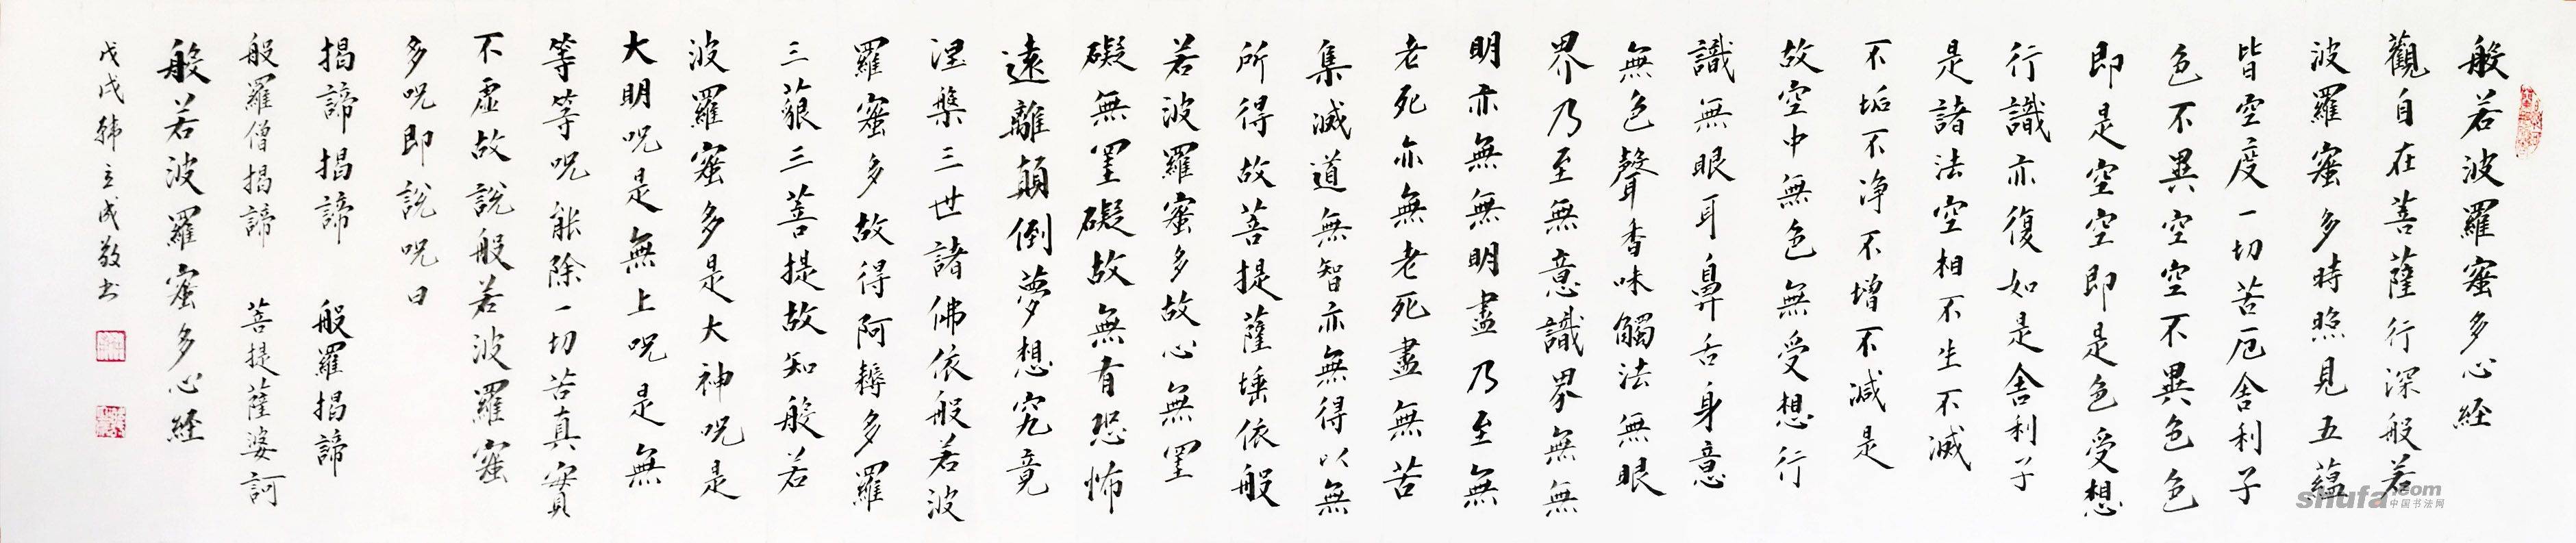 般若波羅蜜多心経
觀自在菩薩行深般若
波羅蜜多時照見五蘊
皆空度一切苦厄舍利子
色不異空空不異色色
即是空空即是色受想
行識亦復如是舍利子
是諸法空相不生不滅
不垢不净不增不減是
故空中無色無受想行
識無眼耳鼻舌身意
無色聲香味觸法無眼
界乃至無意識界無無
明亦無無明盡乃至無
老死亦無老死盡無苦
集滅道無智亦無得以無
所得故菩提薩埵依般
若波羅蜜多故心無罣
礙無罣礙故無有恐怖
遠離顛倒夢想究竟
涅槃三世諸佛依般若波
羅蜜多故得阿耨多羅
三藐三菩提故知般若
波羅蜜多是大神呪是
大明呪是無上呪是無
等等呪能除一切苦真實
不虛故說般若波羅蜜
多呪即說呪曰
揭諦揭諦 般羅揭諦
般羅僧揭諦 菩提薩婆訶
般若波羅蜜多心経
戊戌韩立成敬书
shufa.com
中国书法网